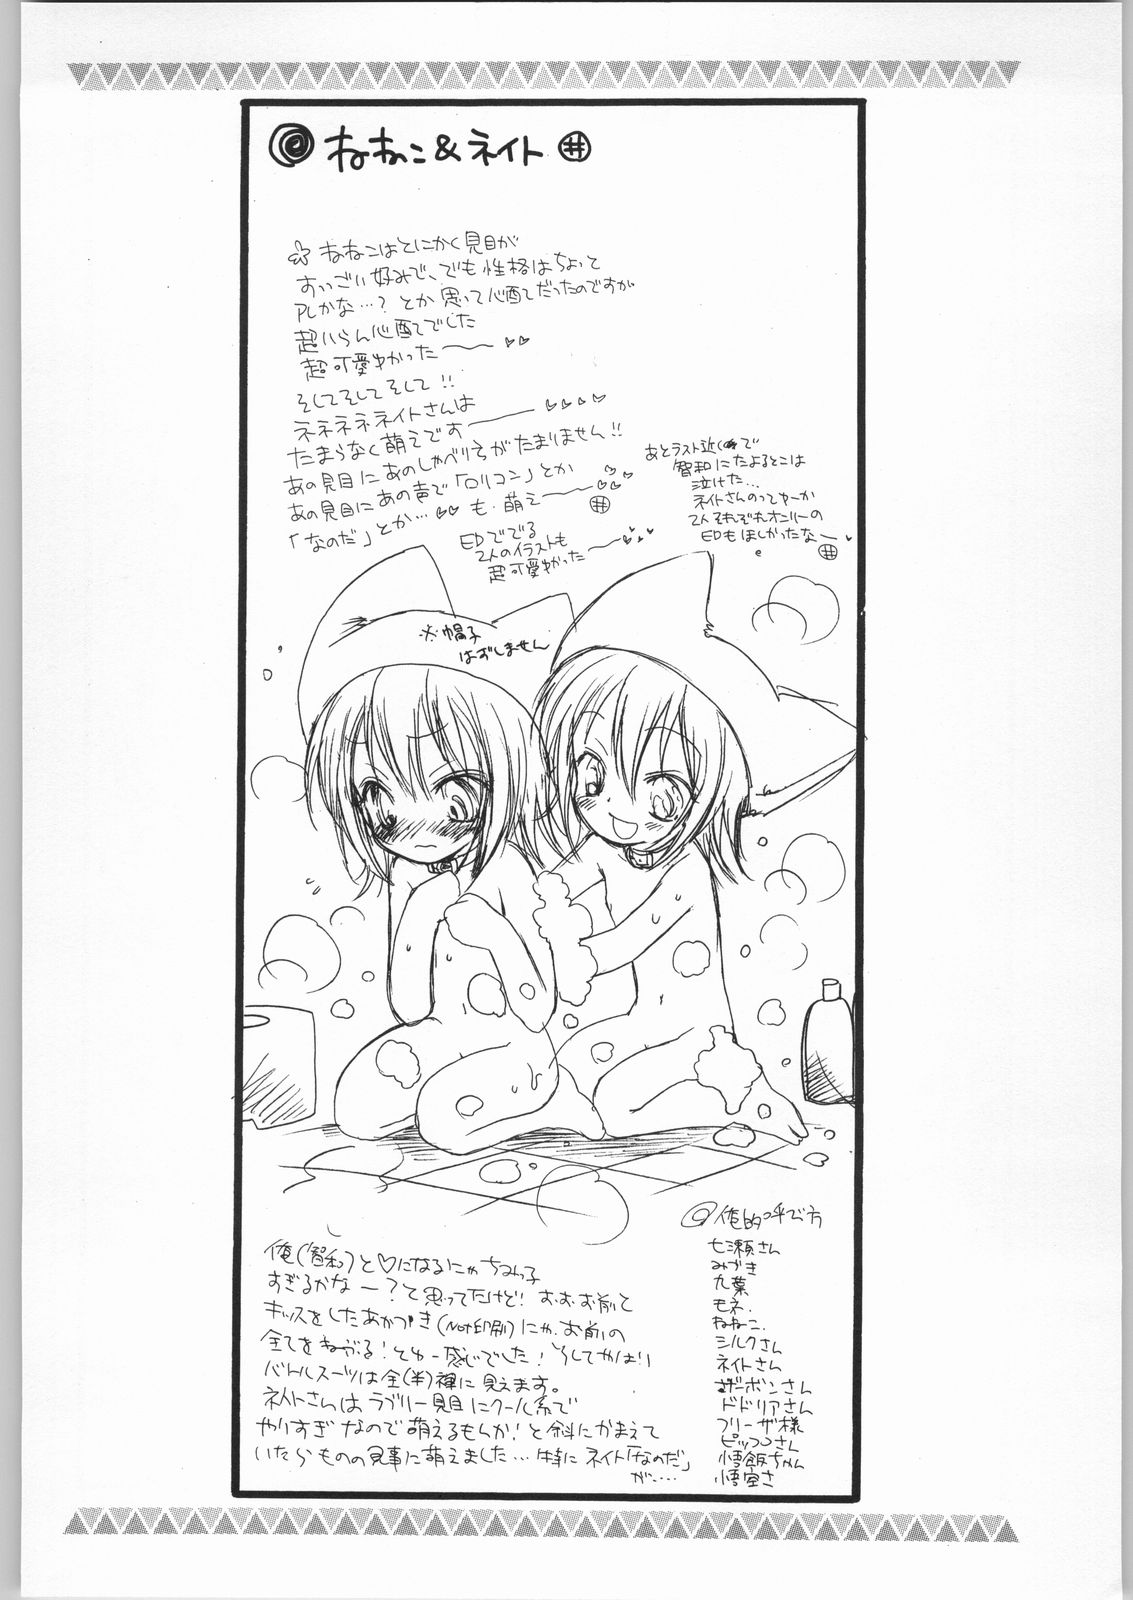 ねねこ&ネイト
ねねこはとにかく見目が
すっごい好みで、でも性格はちょって
アレかな…?とか思って心配だったのですが
超いらん心配でした
超可愛かった
そしてそしてそして!!
ネネネネネイトさんは
たまらなく萌えです
あの見目にあのしゃべり方がたまりません!!
あの見目にあの声で「ロリコン」とか
「なのだ」とか… も、萌え
あとラスト近くで
智和にたよるとこは
泣けた…
ネイトさんのってゆーか
2人それぞれオンリーの
EDもほしかったな
EDででる
2人のイラストも
超可愛かった
※帽子
はずしません
俺(智和)と♡になるにゃちみっ子
すぎるかなー?て思ってたけど!お、お、お前て
キッスをしたあかつき(Not印刷)にゃ、お前の
全てをねぶる!てゆー感じでした!そしてやはり
バトルスーツは全(半)裸に見えます。
ネイトさんはラブリー見目にクール系で
やりすぎなので萌えるもんか!と斜にかまえて
いたらものの見事に萌えました…特にネイト「なのだ」
が‥‥
俺的呼び方
七瀬さん
みづき
九葉
モネ.
ねねこ.
シルクさん
ネイトさん
ザーボンさん
ドドリアさん
フリーザ様
ピッコさん
悟飯ちゃん
悟空さ